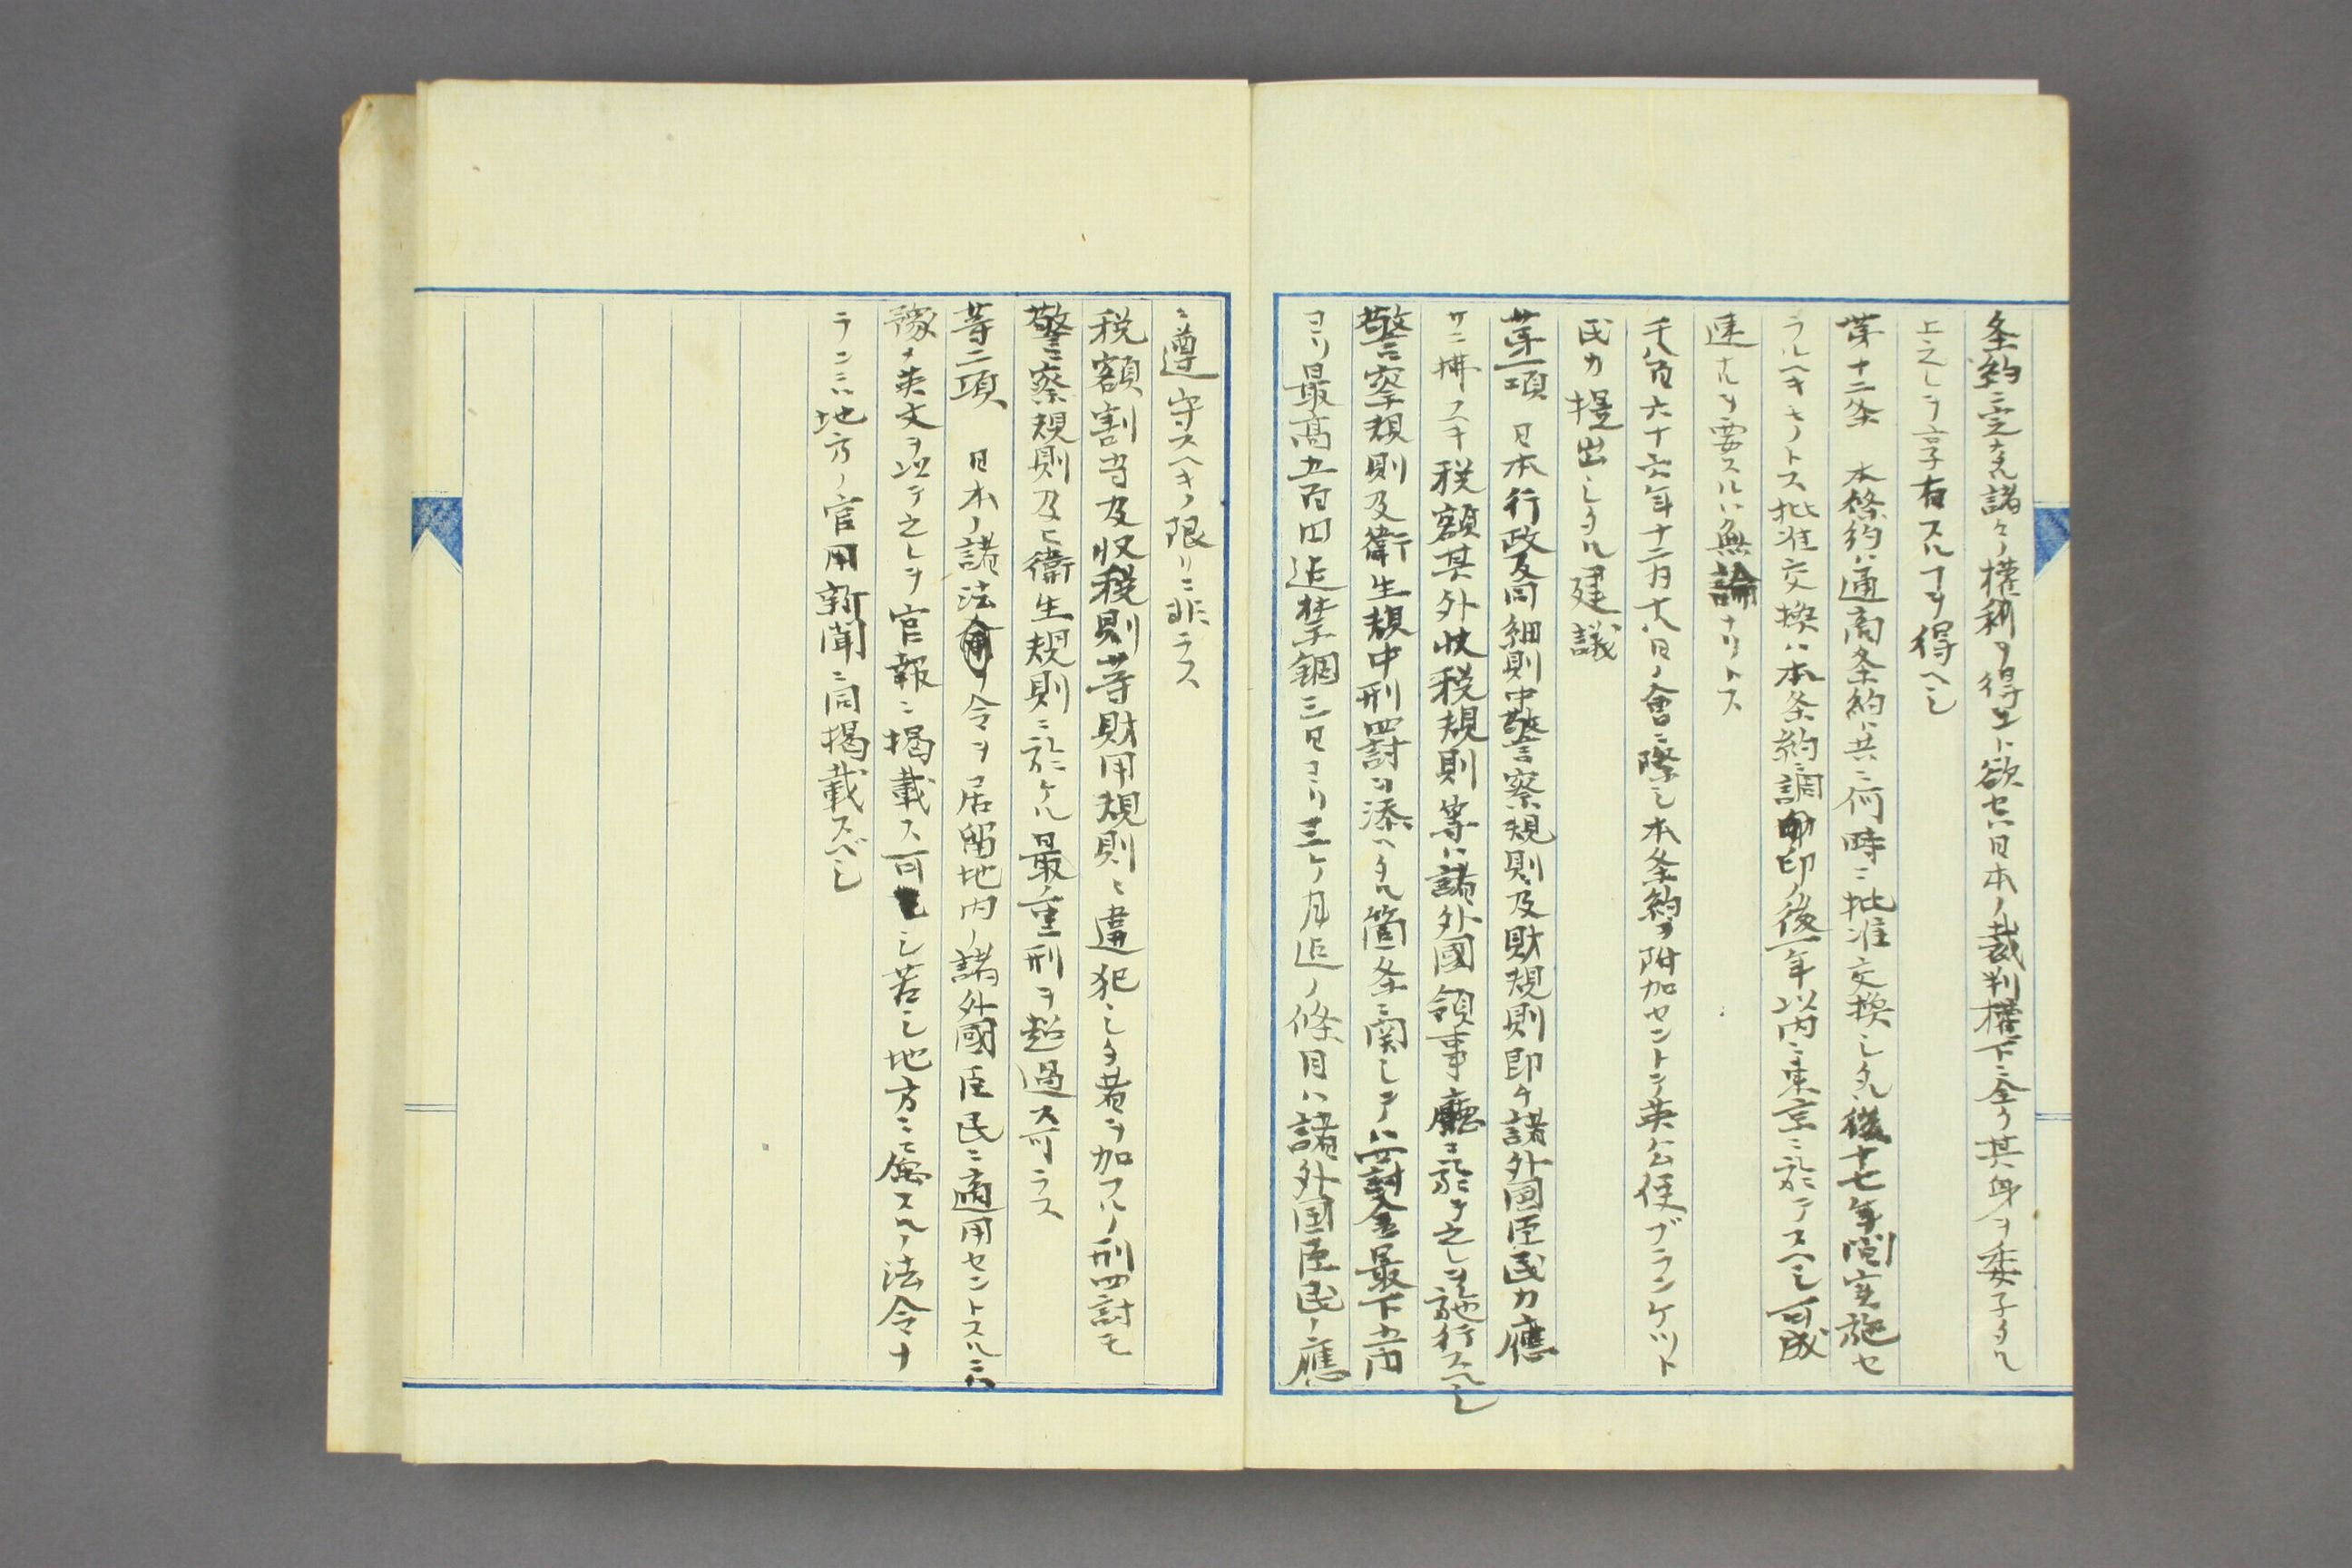 条約ニ定タル諸々ノ權利ヲ得ント欲セハ日本ノ裁判權下ニ全ク其身ヲ委子タル
上之レヲ享有スルヿヲ得ヘシ
第十二条 本條約ハ通商条約ト共ニ何時ニ批准交換シタル後十七年間実施セ
ラルヘキモノトス批准交換ハ本条約調印ノ後一年以内ニ東京ニ於テスヘシ可成
速ナルヲ要スルハ無論ナリトス
千八百八十六年十二月十八日ノ會ニ際シ本条約ヲ附加セントノ英公使プランケット
氏カ提出シタル建議
第一項 日本行政及同細則中警察規則及財規則即チ諸外国臣民カ應
サニ拂フヘキ税額其外收税規則等ハ諸外國領事廳ニ於テ之レヲ施行スヘシ
警察規則及衛生規中刑罰ヲ添ヘタル箇条ニ関シテハ罰金最下五円
ヨリ最高五百円迄禁錮三日ヨリ三ヶ月迄ノ條目ハ諸外国臣民ノ應
ニ遵守スヘキノ限リニ非ラス
税額割当及収税則等財用規則ニ違犯シタ者ヲ加フルノ刑罰モ
警察規則及ヒ衛生規則ニ於ケル最重刑ヲ超過ス可ラス
第二項 日本ノ諸法令ヲ居留地内ノ諸外國臣民ニ適用セントスルニハ
豫メ英文ヲ以テ之レヲ官報ニ掲載ス可シ若シ地方ニ局スルノ法令ナ
ランニハ地方ノ官用新聞ニ同掲載スベシ